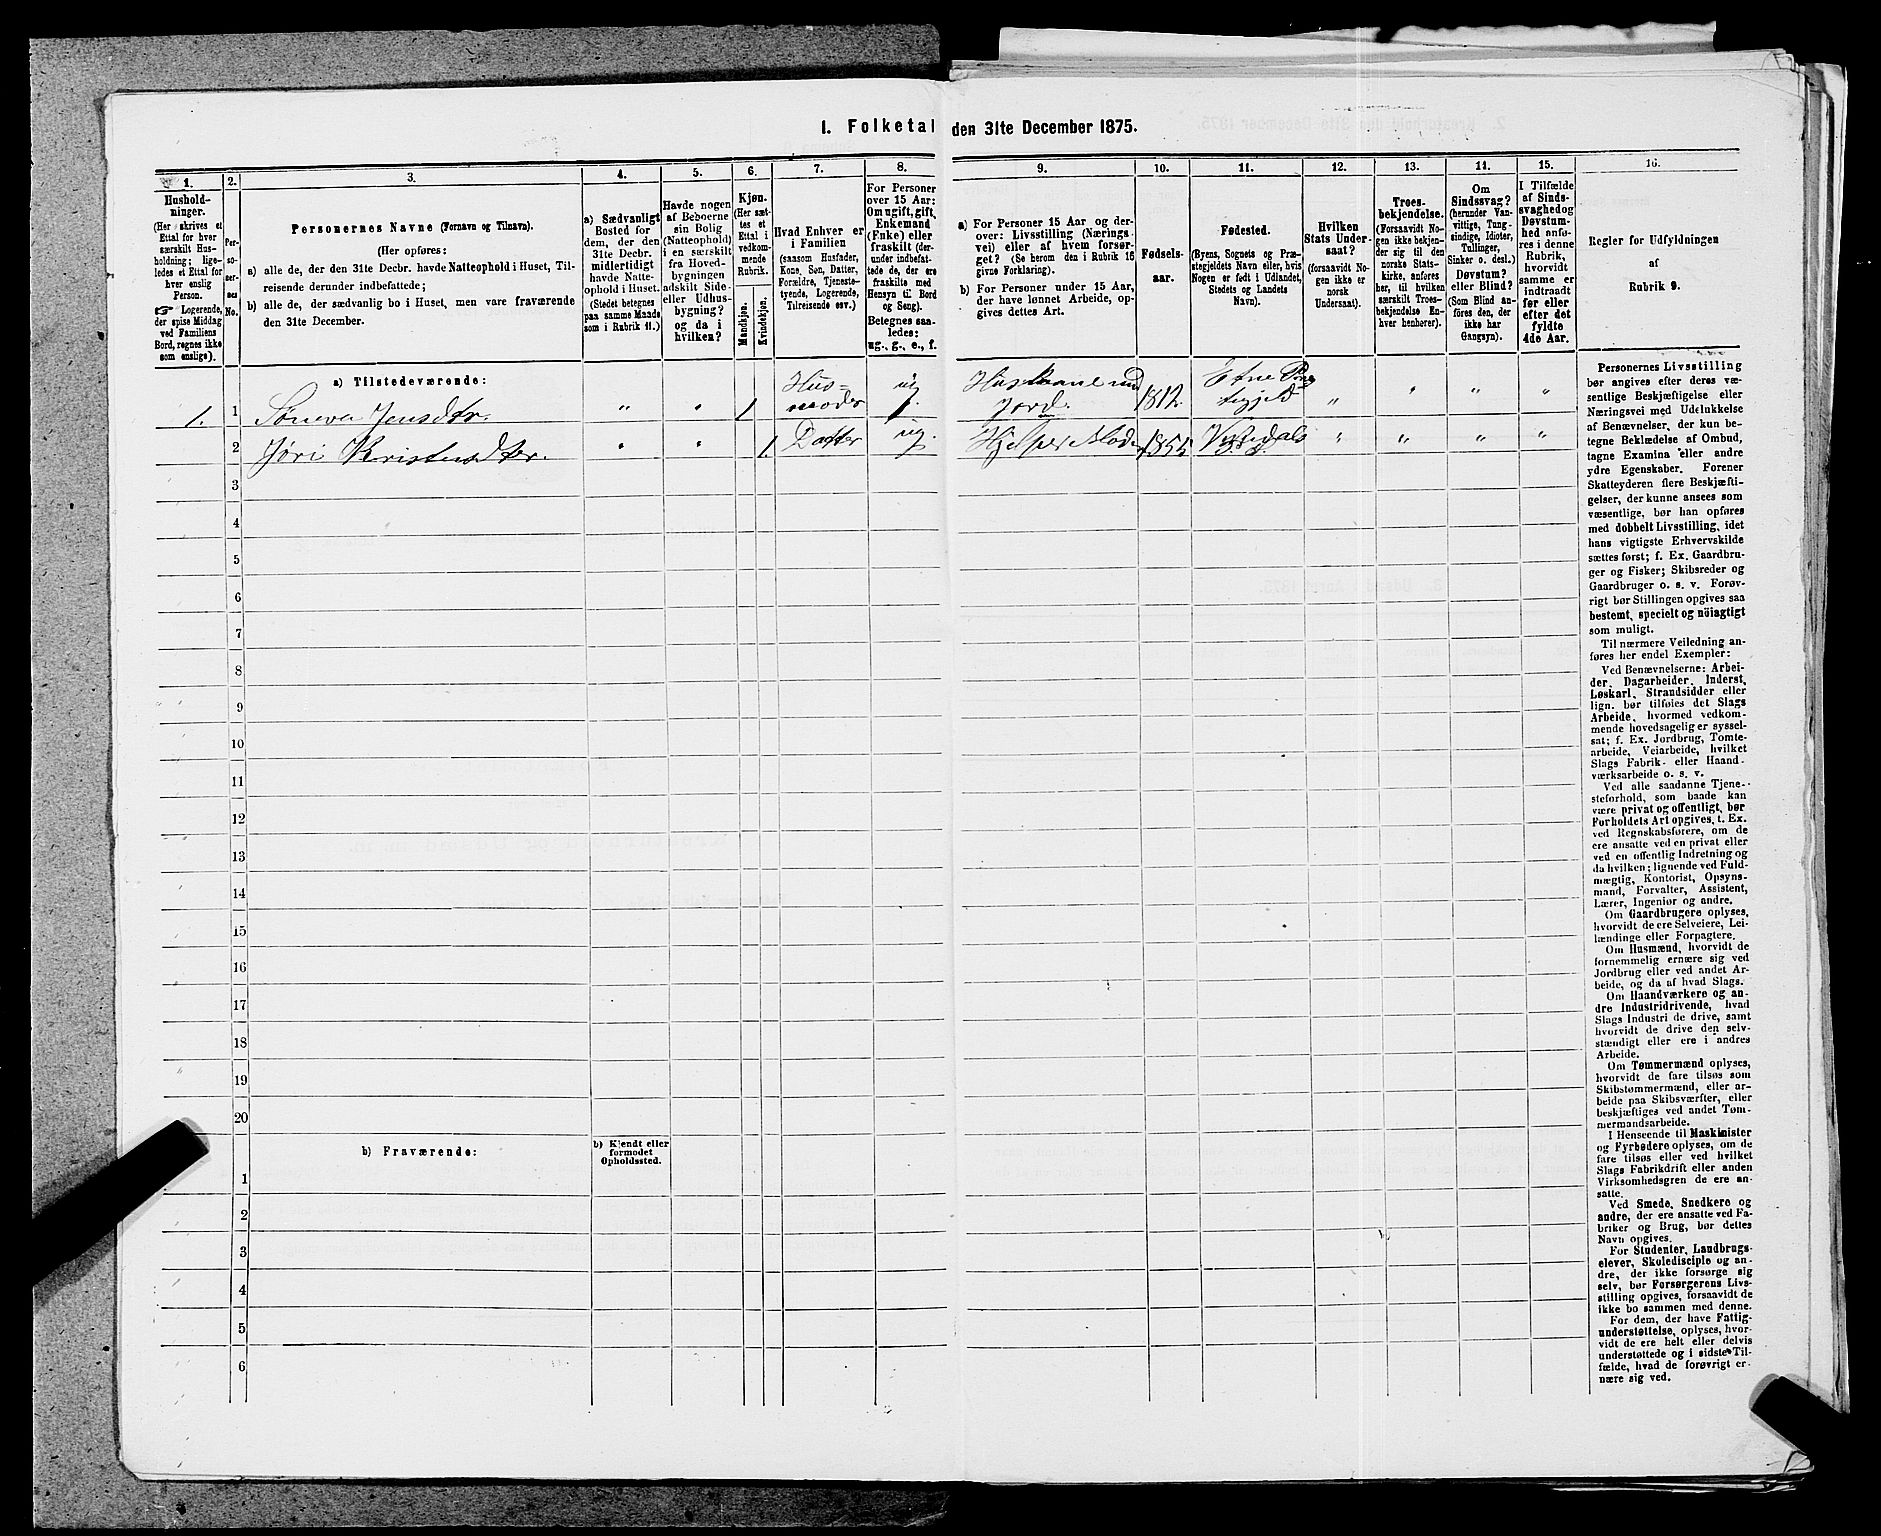 1. Folketal den 31te December 1875.
1. 2. 3. 4. 5. 6. 7. 8. 9. 10. 11. 12. 13. 14. 15. 16.
Hushold-
ninger.
(Her skrives et
Ettal for hver
særskilt Hus-
holdning; lige-
ledes et Ettal for
hver enslig
Person.
☞ Logerende,
der spise Middag
ved Familiens
Bord, regnes ikke
som enslige).
Per-
so-
ner-
nes
No.
Personernes Navne (Fornavn og Tilnavn).
(Her opføres:
a) alle de, der den 31te Decbr. havde Natteophold i Huset, Til-
reisende derunder indbefattede;
b) alle de, der sædvanlig bo i Huset, men vare fraværende
den 31te December.
a) Sædvanligt
Bosted for
dem, der den
31te Decbr.
midlertidigt
havde Natte-
ophold i Huset.
(Stedet betegnes
paa samme Maade
som i Rubrik 11.)
Havde nogen
af Beboerne
sin Bolig
(Natteophold)
i en særskilt
fra Hoved-
bygningen
adskilt Side-
eller Udhus-
bygning?
og da i
hvilken?
Kjøn.
(Her sæt-
tes et
Ettal i
vedkom-
mende
Rubrik.
Mandkjøn.
Kvindekjøn.
Hvad Enhver er
i Familien
(saasom Husfader,
Kone, Søn, Datter,
Forældre, Tjeneste-
tyende, Logerende,
Tilreisende osv.)
For Personer
over 15 Aar:
Om ugift, gift,
Enkemand
(Enke) eller
fraskilt (der-
under indbefat-
tede de, der ere
fraskilte med
Hensyn til Bord
og Seng).
Betegnes saa-
ledes:
ug., g., e., f.
a) For Personer 15 Aar og der-
over: Livsstilling (Nærings-
vei) eller af hvem forsør-
get? (Se herom den i Rubrik 16
givne Forklaring).
b) For Personer under 15 Aar,
der have lønnet Arbeide, op-
gives dettes Art.
Fødsels-
aar.
Fødested.
(Byens, Sognets og Præ-
stegjeldets Navn eller, hvis
Nogen er født i Udlandet,
Stedets og Landets
Navn).
Hvilken
Stats Under-
saat?
(forsaavidt No-
gen ikke er
norsk
Undersaat).
Troes-
bekjendelse.
(Forsaavidt Nogen
ikke bekjen-
der sig til den
norske Stats-
kirke, anføres
her, til hvilken
særskilt Troes-
bekjendelse En-
hver henhører).
Om
Sindssvag?
(herunder Van-
vittige, Tung-
sindige, Idioter,
Tullinger,
Sinker o. desl.)
Døvstum?
eller Blind?
(Som Blind an-
føres den, der
ikke har
Gangsyn).
I Tilfælde
af Sinds-
svaghed og
Døvstum-
hed anfø-
res i denne
Rubrik,
hvorvidt
samme er
indtraadt
før eller
efter det
fyldte
4de Aar.
Regler for Udfyldningen
af
Rubrik 9.
a) Tilstedeværende:
1. 1 Søneva Jensdtr. " " 1 Hus=moder ug. Jord. 1812. Etne " " " "
2 Jøri Kristensdter. " " 1. Datter ug. Hjelper Moder 1855 " " " "
3
4
5
6
7
8
9
10
11
12
13
14
15
16
17
18
19
20
b) Fraværende:
b) Kjendt eller
formodet
Opholdssted.
1
2
3
4
5
6
Personernes Livsstilling
bør angives efter deres væ-
sentlige Beskjæftigelse eller
Næringsvei med Udelukkelse
af Benævnelser, der kun be-
tegne Beklædelse af Ombud,
tagne Examina eller andre
ydre Egenskaber. Forener
Skatteyderen flere Beskjæfti-
gelser, der kunne ansees som
væsentlige, bør han opføres
med dobbelt Livsstilling, idet
hans vigtigste Erhvervskilde
sættes først; f. Ex. Gaardbru-
ger og Fisker; Skibsreder og
Gaardbruger o. s. v. Forøv-
rigt bør Stillingen opgives saa
bestemt, specielt og nöiagtigt
som muligt.
Til nærmere Veiledning an-
føres her endel Exempler:
Ved Benævnelserne: Arbei-
der, Dagarbeider, Inderst,
Løskarl, Strandsidder eller
lign. bør tilføies det Slags
Arbeide, hvormed vedkom-
mende hovedsagelig er syssel-
sat; f. Ex. Jordbrug, Tomte-
arbeide, Veiarbeide, hvilket
Slags Fabrik- eller Haand-
værksarbeide o. s. v.
Ved alle saadanne Tjene-
steforhold, som baade kan
være privat og offentligt, bør
Forholdets Art opgives, t. Ex.
ved Regnskabsførere, om de
ere ansatte ved en privat eller
ved en offentlig Indretning og
da hvilken; lignende ved Fuld-
mægtig, Kontorist, Opsyns-
mand, Forvalter, Assistent,
Lærer, Ingeniør og andre.
Om Gaardbrugere oplyses,
hvorvidt de ere Selveiere, Lei-
lændinge eller Forpagtere.
Om Husmænd, hvorvidt de
fornemmelig ernære sig ved
Jordbrug eller ved andet Ar-
beide, og da af hvad Slags.
Om Haandværkere og an-
dre Industridrivende, hvad
Slags Industri de drive, samt
hvorvidt de drive den selv-
stændigt eller ere i andres
Arbeide.
Om Tømmermænd oplyses,
hvorvidt de fare tilsøs som
Skibstømmermænd, eller ar-
beide paa Skibsværfter, eller
beskjæftiges ved andet Tøm-
mermandsarbeide.
I Henseende til Maskinister
og Fyrbødere oplyses, om de
fare tilsøs eller ved hvilket
Slags Fabrikdrift eller anden
Virksomhedsgren de ere an-
satte.
Ved Smede, Snedkere og
andre, der ere ansatte ved Fa-
briker og Brug, bør dettes
Navn opgives.
For Studenter, Landbrugs-
elever, Skoledisciple og an-
dre, der ikke forsørge sig
selv, bør Forsørgerens Livs-
stilling opgives, forsaavidt de
ikke bo sammen med denne.
For dem, der have Fattig-
understøttelse, oplyses, hvor-
vidt de ere helt eller delvis
understøttede og i sidste Til-
fælde, hvad de forøvrigt er-
nære sig ved.